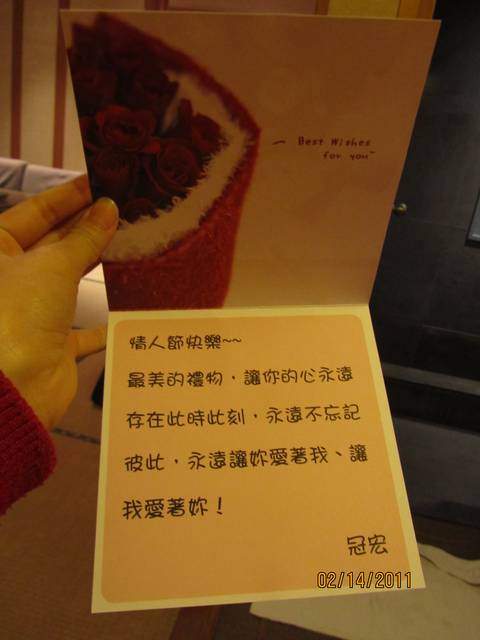 — Best Wishes
for you~
情人節快樂~~
最美的禮物，讓你的心永遠
存在此時此刻，永遠不忘記
彼此，永遠讓妳愛著我、讓
我愛著妳！
冠宏
02/14/2011